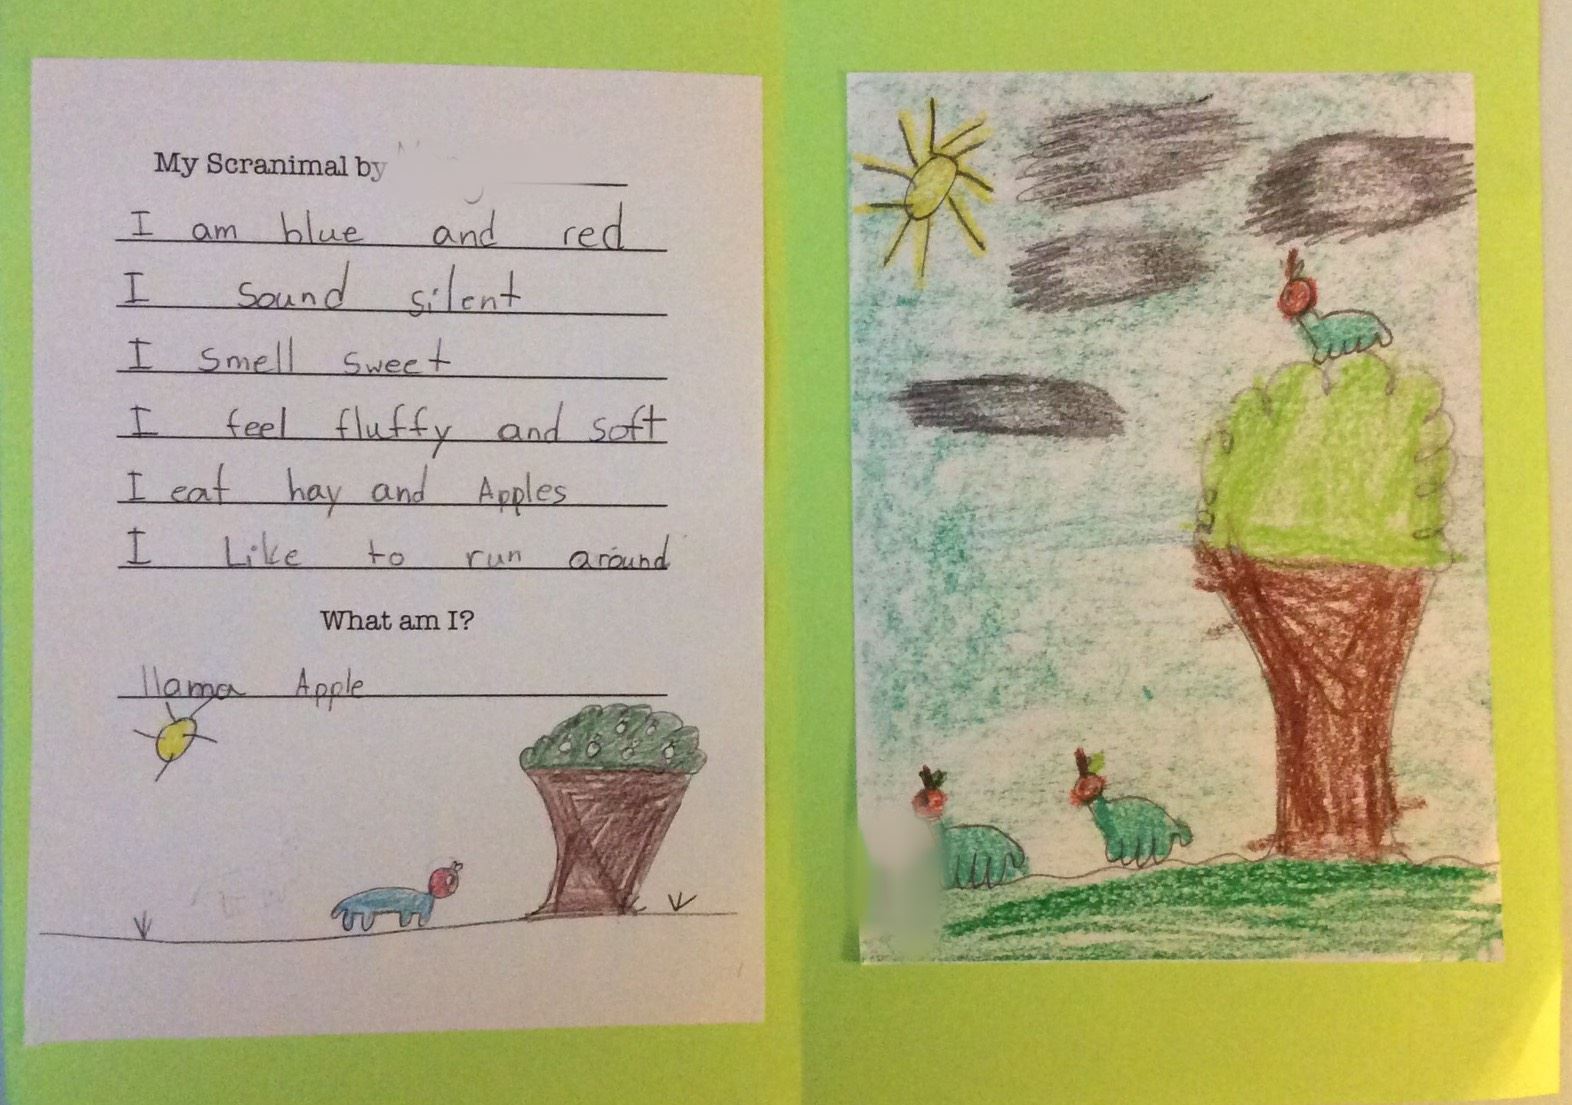 My Scranimal by
I am blue and red
I sound silent
I smell sweet
I feel fluffy and soft
I eat hay and Apples
I Like to run around
What am I?
llama Apple